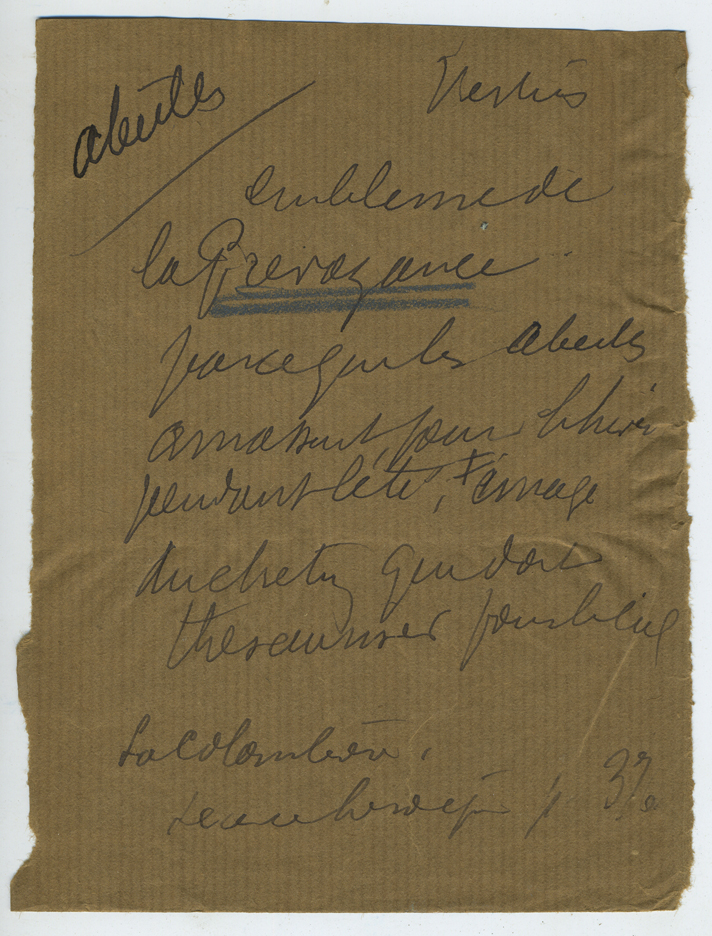 abeilles
Vertus
embleme de
la Prevoyance.
parceque les abeilles
amassent, pour l'hiver
pendant l'été, image
du chretien qui doit
thesauriser pour le ciel
La Colombière.
p 37